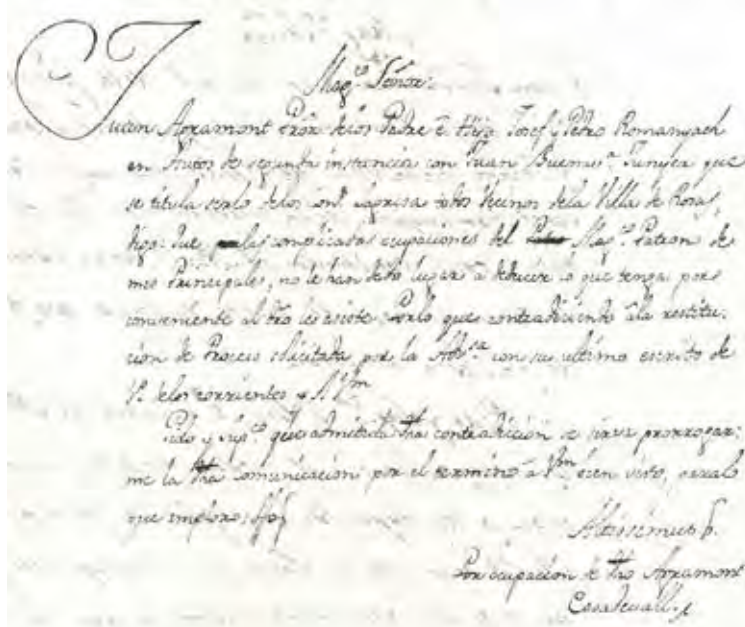 Mag.co Señor:
Juan Agramont Pror. delos Padre é Hijo Josef y Pedro Romanyach
en Autos de segunda instancia con Juan Buenav.a Junyer que
se titula serlo de los con.s Caprisa todos vecinos dela Villa de Rosas,
digo: Que las complicadas ocupaciones del Mag.co Patron de
mis Principales, no le han dado lugar á deducir lo que tenga por
conveniente al dro les asiste: Por lo que contradiciendo á la restitu-
cion de Proceso solicitada por la Adv.sa con su ultimo escrito de
de los corrientes A Vm
Pido y sup.co que admitida dha contradicion se sirva prorrogar-
me la dha comunicacion por el termino á Vm bien visto, para lo
que imploro &c
Altissimus &.
Por ocupacion de dho Agramont
Casadevall